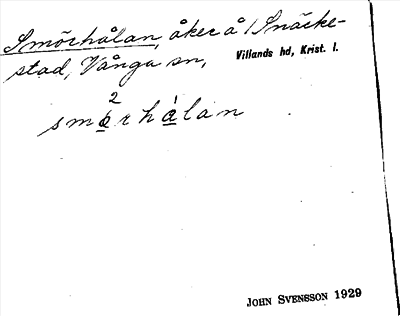 Smörhålan, åker å 1 Snäcke-
stad, Vånga sn, Villands hd, Krist. l.
smörhålan
JOHN SVENSSON 1929